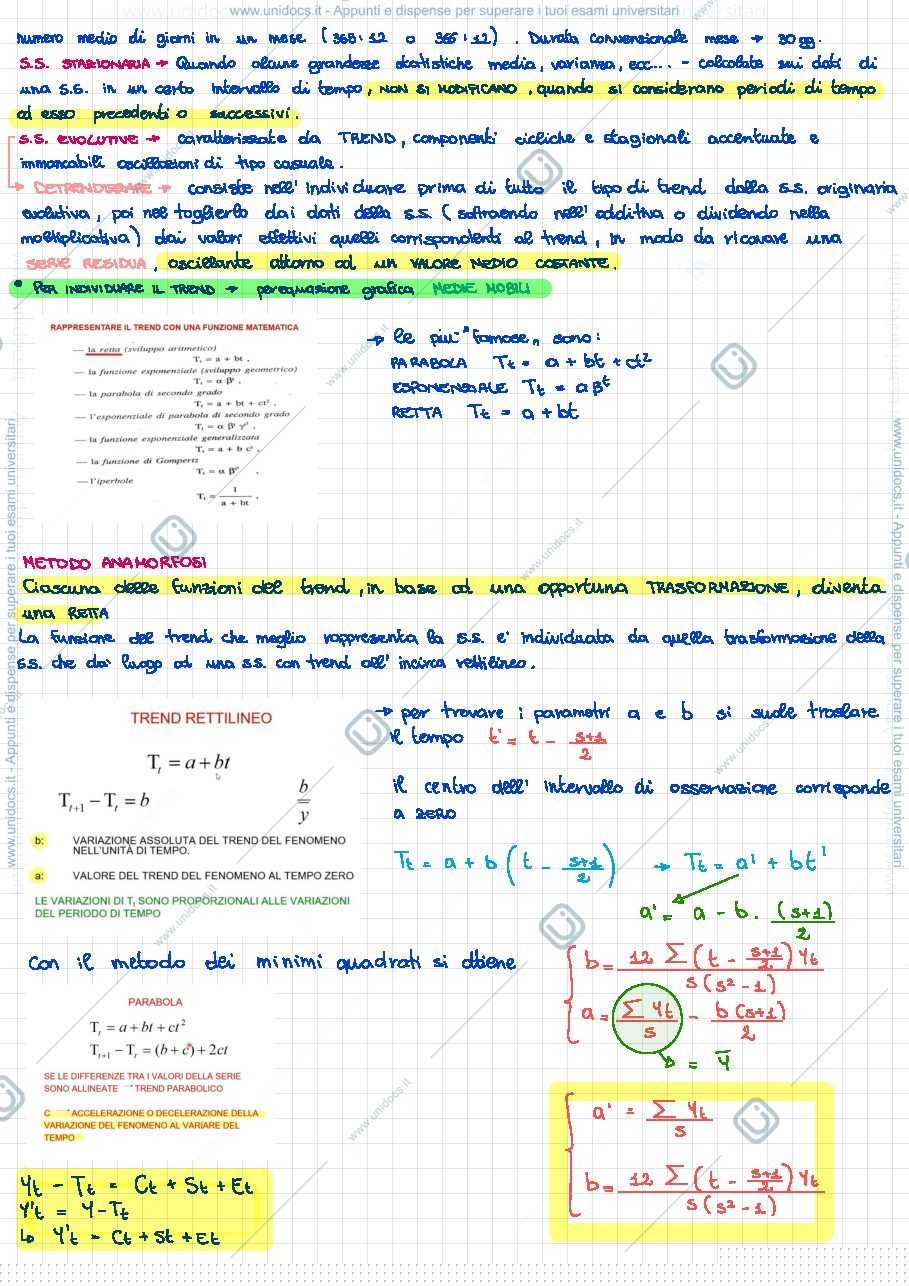 www.unidocs.it - Appunti e dispense per superare i tuoi esami universitari
numero medio di giorni in un mese (365:12 o 366:12). Durata convenzionale mese → 30 gg.
S.S. STAZIONARIA → Quando alcune grandezze statistiche media, varianza, ecc... - calcolate sui dati di
una S.S. in un certo intervallo di tempo, NON SI MODIFICANO, quando si considerano periodi di tempo
ad esso precedenti o successivi.
S.S. EVOLUTIVE → caratterizzate da TREND, componenti cicliche e stagionali accentuate e
immancabili oscillazioni di tipo casuale.
DETRENDIZZARE → consiste nell'individuare prima di tutto il tipo di trend dalla s.s. originaria
evolutiva, poi nel toglierlo dai dati della s.s. (sottraendo nell'additiva o dividendo nella
moltiplicativa) dai valori effettivi quelli corrispondenti al trend, in modo da ricavare una
SERIE RESIDUA, oscillante attorno ad un VALORE MEDIO COSTANTE.
• PER INDIVIDUARE IL TREND → perequazione grafica MEDIE MOBILI
RAPPRESENTARE IL TREND CON UNA FUNZIONE MATEMATICA
— la retta (sviluppo aritmetico)
Tₜ = a + bt ,
— la funzione esponenziale (sviluppo geometrico)
Tₜ = α βᵗ ,
— la parabola di secondo grado
Tₜ = a + bt + ct² ,
— l'esponenziale di parabola di secondo grado
Tₜ = α βᵗ γᵗ² ,
— la funzione esponenziale generalizzata
Tₜ = a + b cᵗ ,
— la funzione di Gompertz
— l'iperbole
Tₜ = 1 / (a + bt) ,
→ le più "famose" sono:
PARABOLA Tt = a + bt + ct²
ESPONENZIALE Tt = αβᵗ
RETTA Tt = a + bt
METODO ANAMORFOSI
Ciascuna delle funzioni del trend, in base ad una opportuna TRASFORMAZIONE, diventa
una RETTA
La funzione del trend che meglio rappresenta la s.s. e' individuata da quella trasformazione della
s.s. che da' luogo ad una s.s. con trend all'incirca rettilineo.
TREND RETTILINEO
Tₜ = a + bt
Tₜ₊₁ − Tₜ = b
b / y
b: VARIAZIONE ASSOLUTA DEL TREND DEL FENOMENO
NELL'UNITÀ DI TEMPO.
a: VALORE DEL TREND DEL FENOMENO AL TEMPO ZERO
LE VARIAZIONI DI Tₜ SONO PROPORZIONALI ALLE VARIAZIONI
DEL PERIODO DI TEMPO
→ per trovare i parametri a e b si suole traslare
il tempo t' = t - (s+1)/2
il centro dell'intervallo di osservazione corrisponde
a zero
Tt = a + b (t - (s+1)/2) → Tt = a' + bt'
a' = a - b · (s+1)/2
Con il metodo dei minimi quadrati si ottiene
b = 12 Σ (t - (s+1)/2) Yt / s(s²-1)
a = Σ Yt / s - b(s+1)/2
= Ȳ
PARABOLA
Tₜ = a + bt + ct²
Tₜ₊₁ − Tₜ = (b + c) + 2ct
SE LE DIFFERENZE TRA I VALORI DELLA SERIE
SONO ALLINEATE → TREND PARABOLICO
C → ACCELERAZIONE O DECELERAZIONE DELLA
VARIAZIONE DEL FENOMENO AL VARIARE DEL
TEMPO
a' = Σ Yt / s
b = 12 Σ (t - (s+1)/2) Yt / s(s²-1)
Yt - Tt = Ct + St + Et
Y't = Y - Tt
↳ Y't = Ct + St + Et